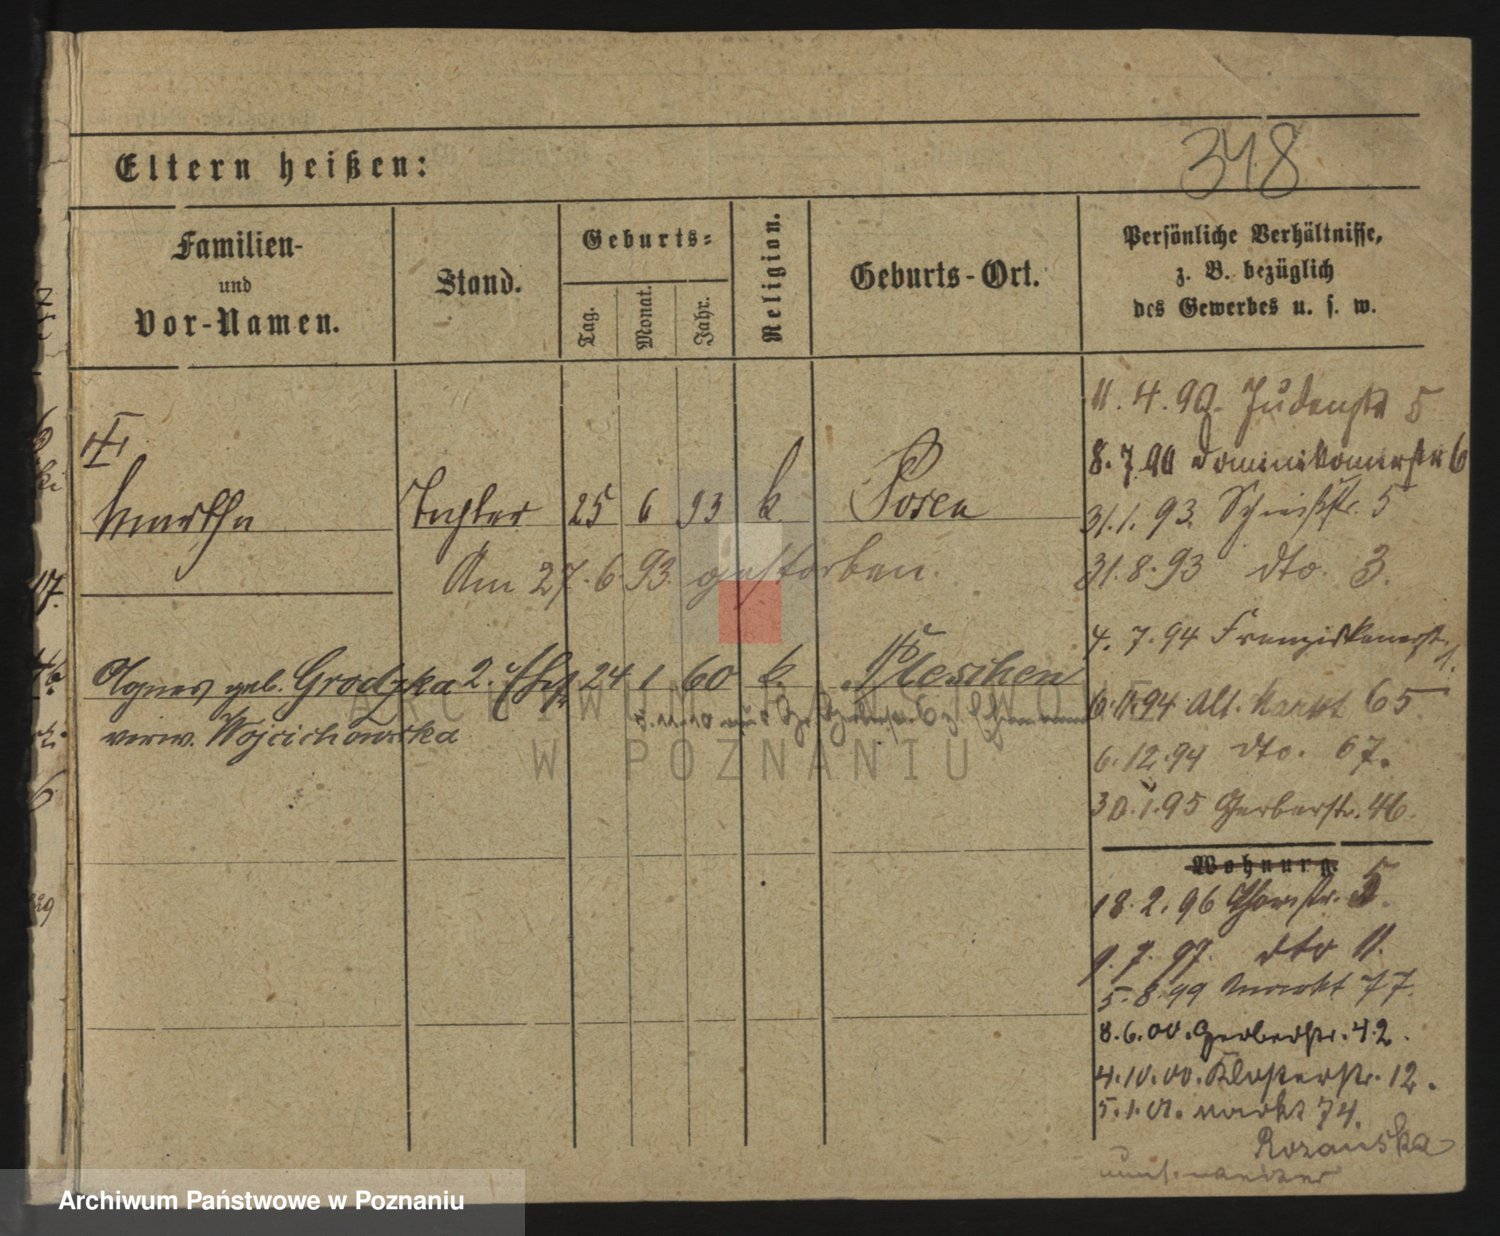 348
Eltern heißen:
Familien- und Vor-Namen.
Stand.
Geburts-
Tag.
Monat.
Jahr.
Religion.
Geburts-Ort.
Persönliche Verhältnisse,
z. B. bezüglich
des Gewerbes u. s. w.
Martha Tochter 25 6 93 k. Posen
Am 27.6.93 gestorben.
Agnes geb. Grodzka 2. Ehefr 24 1 60 k. Pleschen
verw. Wojcichowska
11.4.90. Judenstr 5
8.7.90 Dominikanerstr 6
31.1.93 Schießstr. 5
31.8.93 dto. 3.
4.7.94 Franziskanerstr. 1.
94 Alt. Markt 65
6.12.94 dto. 67.
30.1.95 Gerberstr. 46.
Wohnung.
18.2.96 Thorstr. 5.
1.7.97. dto 11.
5.8.99 Markt 77.
8.6.00. Gerberstr. 42.
4.10.00. Klosterstr. 12.
5.1.01. Markt 74.
Rozańska
ARCHIWUM PAŃSTWOWE
W POZNANIU
Archiwum Państwowe w Poznaniu